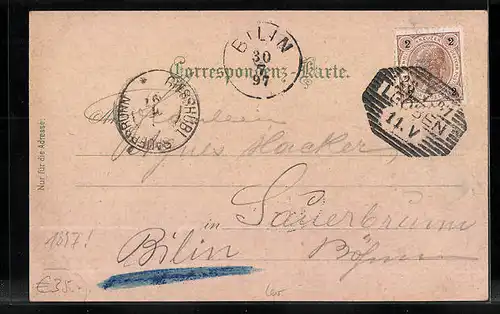 BILIN
30
7
97
2 2
Correspondenz-Karte.
GIESSHÜBL
SAUERBRUNN
11.V
Nur für die Adresse.
Fräulein
Agnes Hacker,
in Sauerbrunn
1897!
Bilin Böhmen
€35.-